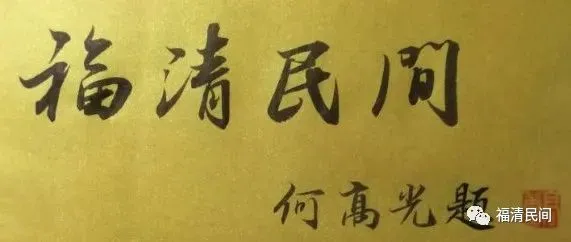 福清民間
何高光题
福清民间